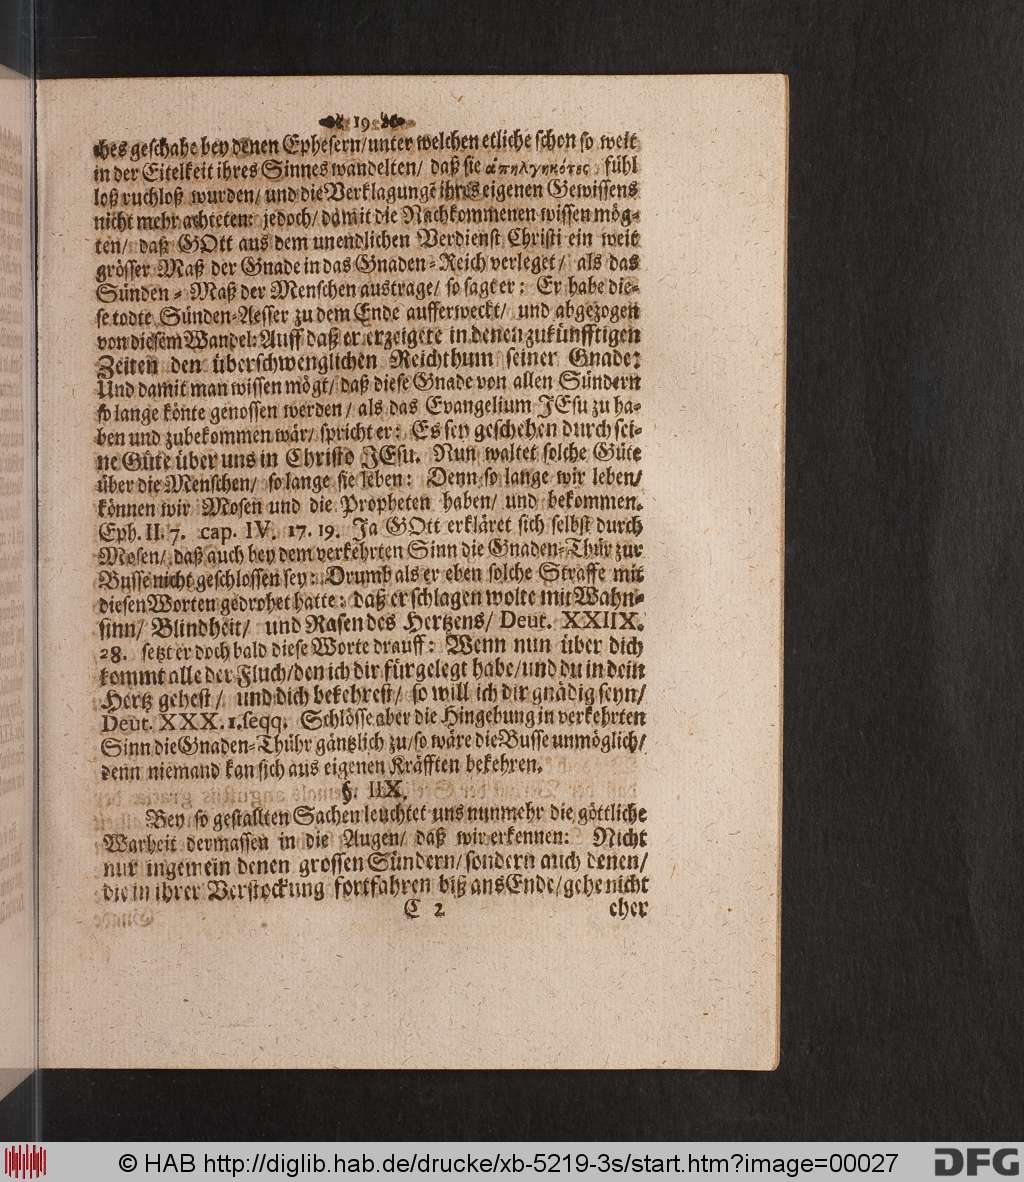 19
ches geschahe bey denen Ephesern/ unter welchen etliche schon so weit
in der Eitelkeit ihres Sinnes wandelten/ daß sie ἀπηλγηκότες fühl
loß ruchloß wurden/ und die Verklagungē ihres eigenen Gewissens
nicht mehr achteten: jedoch/ damit die Nachkommenen wissen mög-
ten/ daß GOtt aus dem unendlichen Verdienst Christi ein weit
grösser Maß der Gnade in das Gnaden-Reich verleget/ als das
Sünden-Maß der Menschen austrage/ so sagt er: Er habe die-
se todte Sünden-Aesser zu dem Ende aufferweckt/ und abgezogen
von diesem Wandel: Auff daß er erzeigete in denen zukünfftigen
Zeiten den überschwenglichen Reichthum seiner Gnade:
Und damit man wissen mögt/ daß diese Gnade von allen Sündern
so lange könte genossen werden/ als das Evangelium JEsu zu ha-
ben und zubekommen wär/ spricht er: Es sey geschehen durch sei-
ne Güte über uns in Christo JEsu. Nun waltet solche Güte
über die Menschen/ so lange sie leben: Denn so lange wir leben/
können wir Mosen und die Propheten haben/ und bekommen.
Eph. II. 7. cap. IV. 17. 19. Ja GOtt erkläret sich selbst durch
Mosen/ daß auch bey dem verkehrten Sinn die Gnaden-Thür zur
Busse nicht geschlossen sey: Drumb als er eben solche Straffe mit
diesen Worten gedrohet hatte: daß er schlagen wolte mit Wahn-
sinn/ Blindheit/ und Rasen des Hertzens/ Deut. XXIIX.
28. setzt er doch bald diese Worte drauff: Wenn nun über dich
kommt alle der Fluch/ den ich dir fürgelegt habe/ und du in dein
Hertz gehest/ und dich bekehrest/ so will ich dir gnädig seyn/
Deut. XXX. 1. seqq. Schlösse aber die Hingebung in verkehrten
Sinn die Gnaden-Thühr gäntzlich zu/ so wäre die Busse unmöglich/
denn niemand kan sich aus eigenen Kräfften bekehren.
§. IIX.
Bey so gestallten Sachen leuchtet uns nunmehr die göttliche
Warheit dermassen in die Augen/ daß wir erkennen: Nicht
nur ingemein denen grossen Sündern/ sondern auch denen/
die in ihrer Verstockung fortfahren biß ans Ende/ gehe nicht
C 2 eher
© HAB http://diglib.hab.de/drucke/xb-5219-3s/start.htm?image=00027 DFG